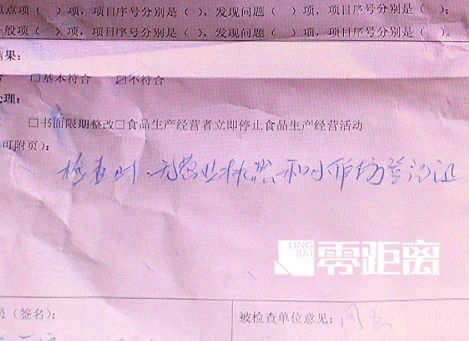 点项（ ）项，项目序号分别是（ ），发现问题（ ）项，项目序号分别是（ ）；
般项（ ）项，项目序号分别是（ ），发现问题（ ）项，项目序号分别是（ ）。
结果：
□基本符合 ☑不符合
处理：
□书面限期整改□食品生产经营者立即停止食品生产经营活动
（可附页）：
检查时，无营业执照和小作坊登记证
LING JULI 零距离
员（签名）：
被检查单位意见：同意